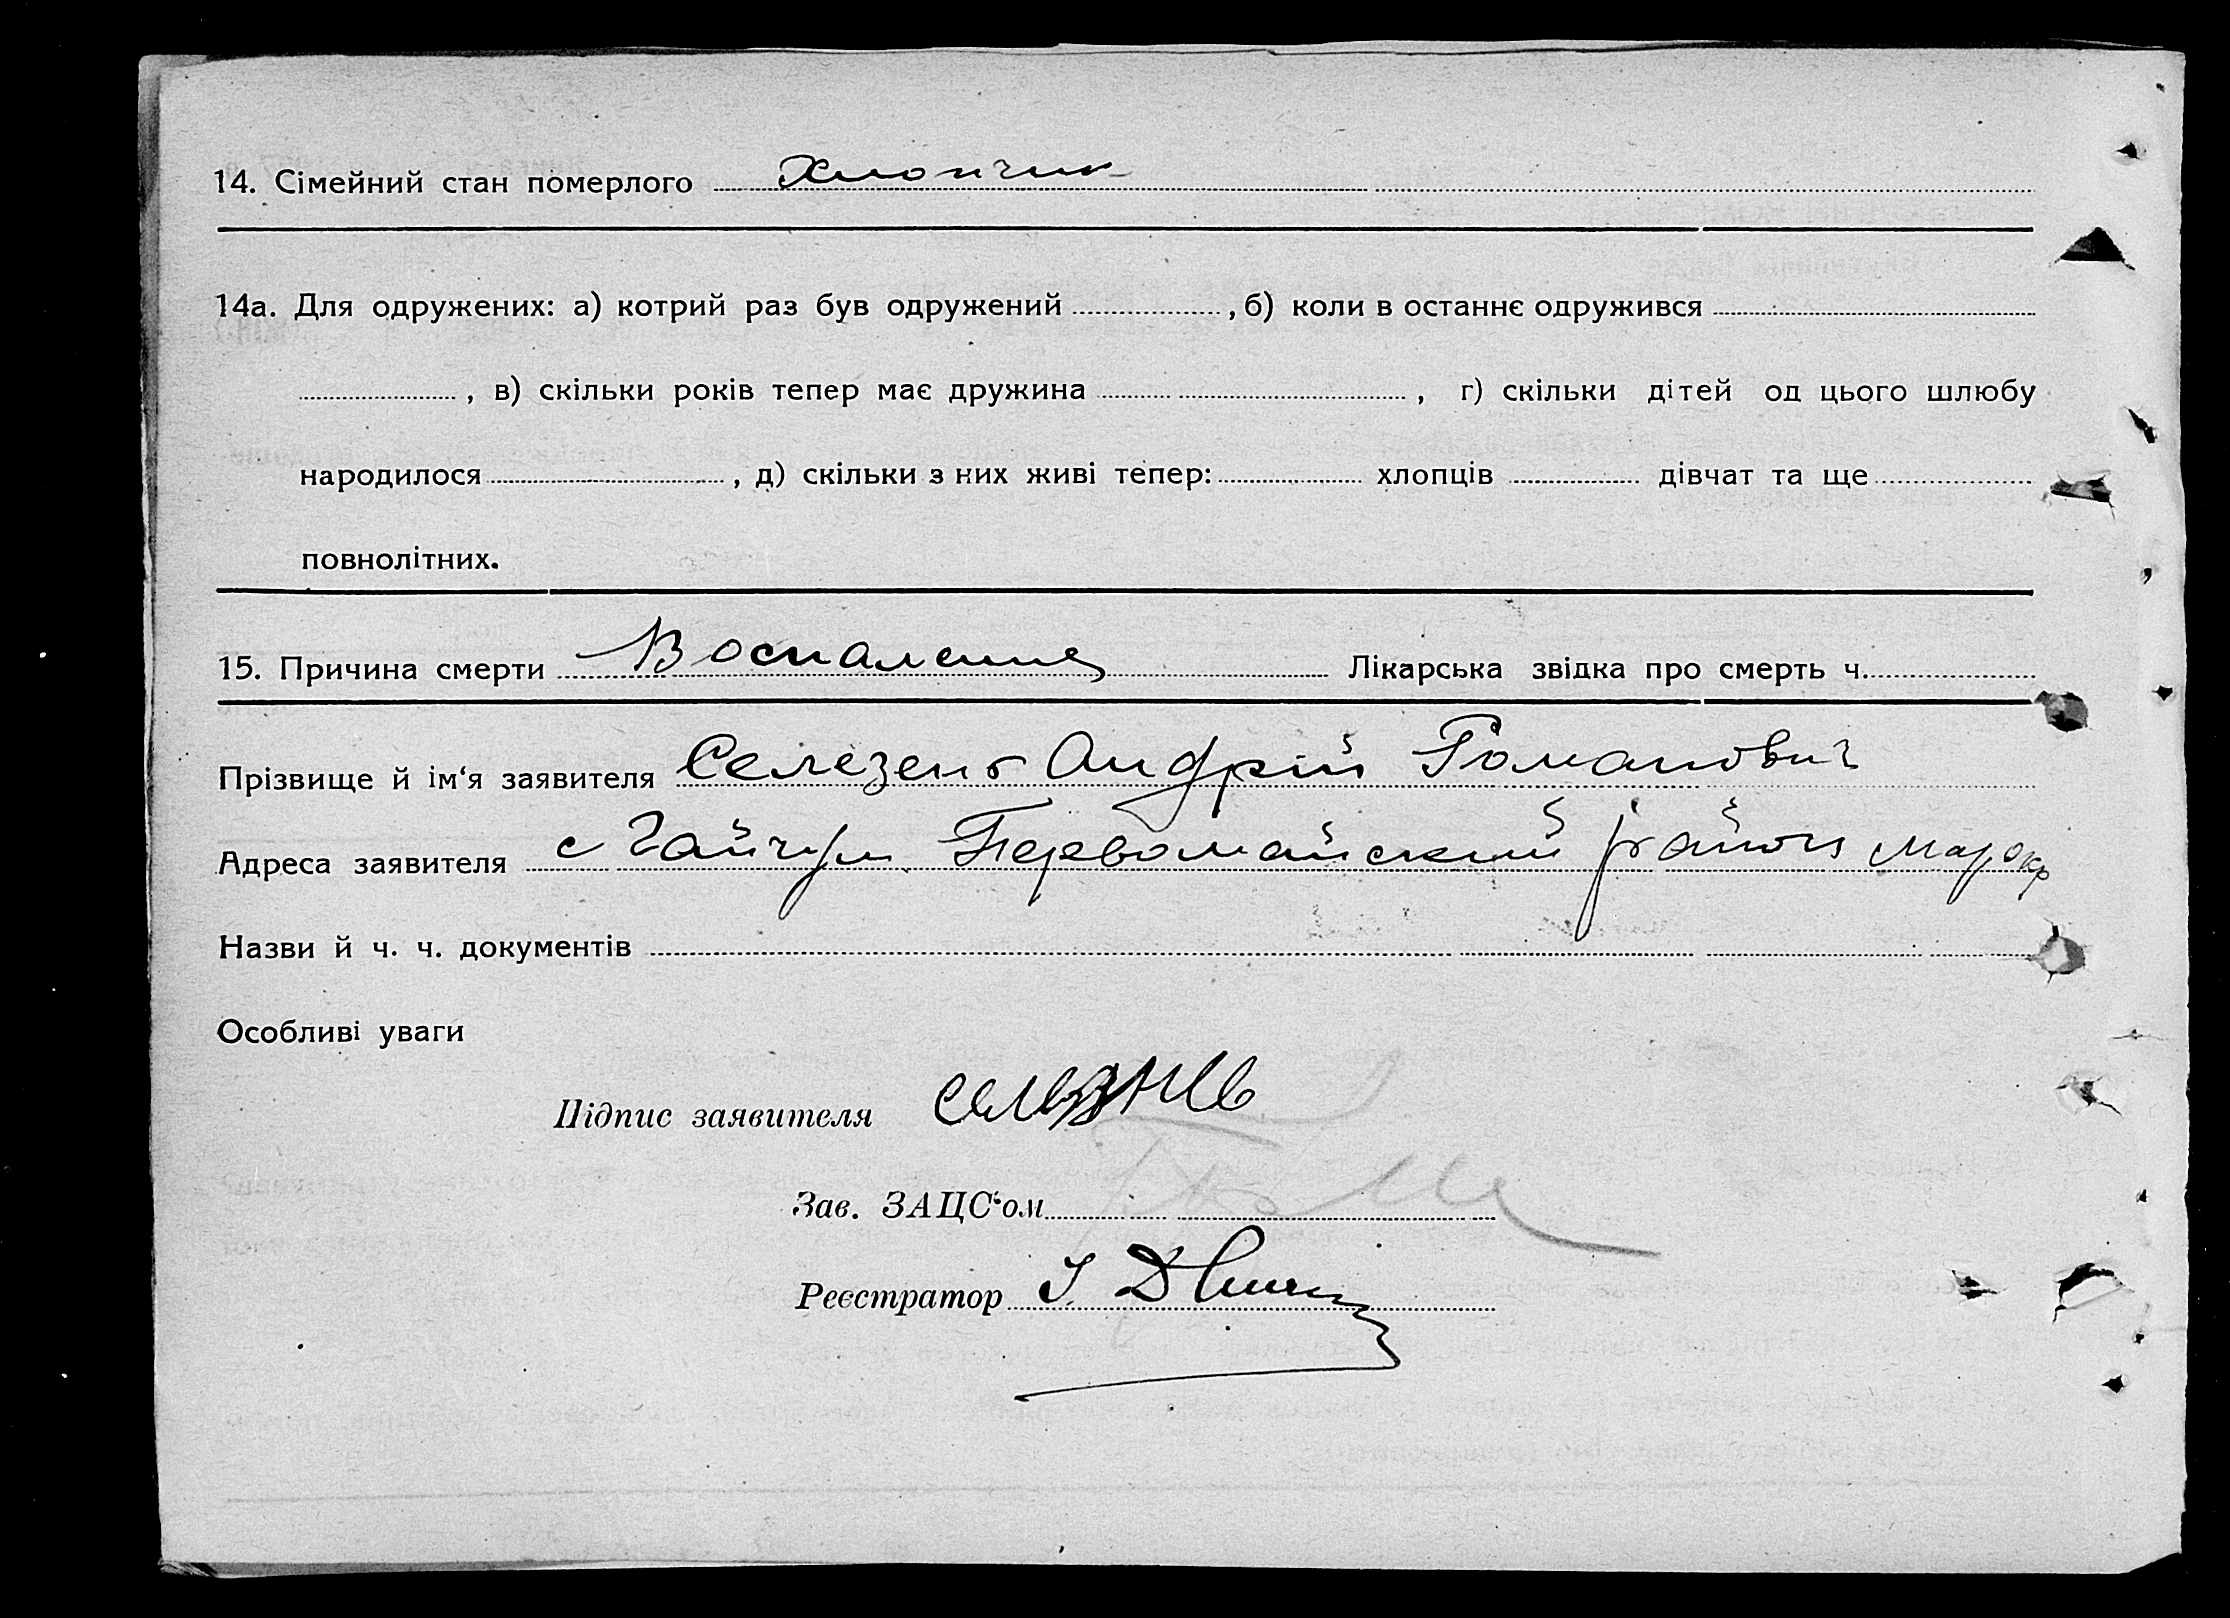 14. Сімейний стан померлого Хлопчик
14а. Для одружених: а) котрий раз був одружений , б) коли в останнє одружився
, в) скільки років тепер має дружина , г) скільки дітей од цього шлюбу
народилося , д) скільки з них живі тепер: хлопців дівчат та ще
повнолітних.
15. Причина смерти Воспаление Лікарська звідка про смерть ч.
Прізвище й ім‘я заявителя Селезень Андрій Романович
Адреса заявителя с Гайчул Первомайський район Марокр
Назви й ч. ч. документів
Особливі уваги
Підпис заявителя
Зав. ЗАЦС‘ом
Реєстратор І.